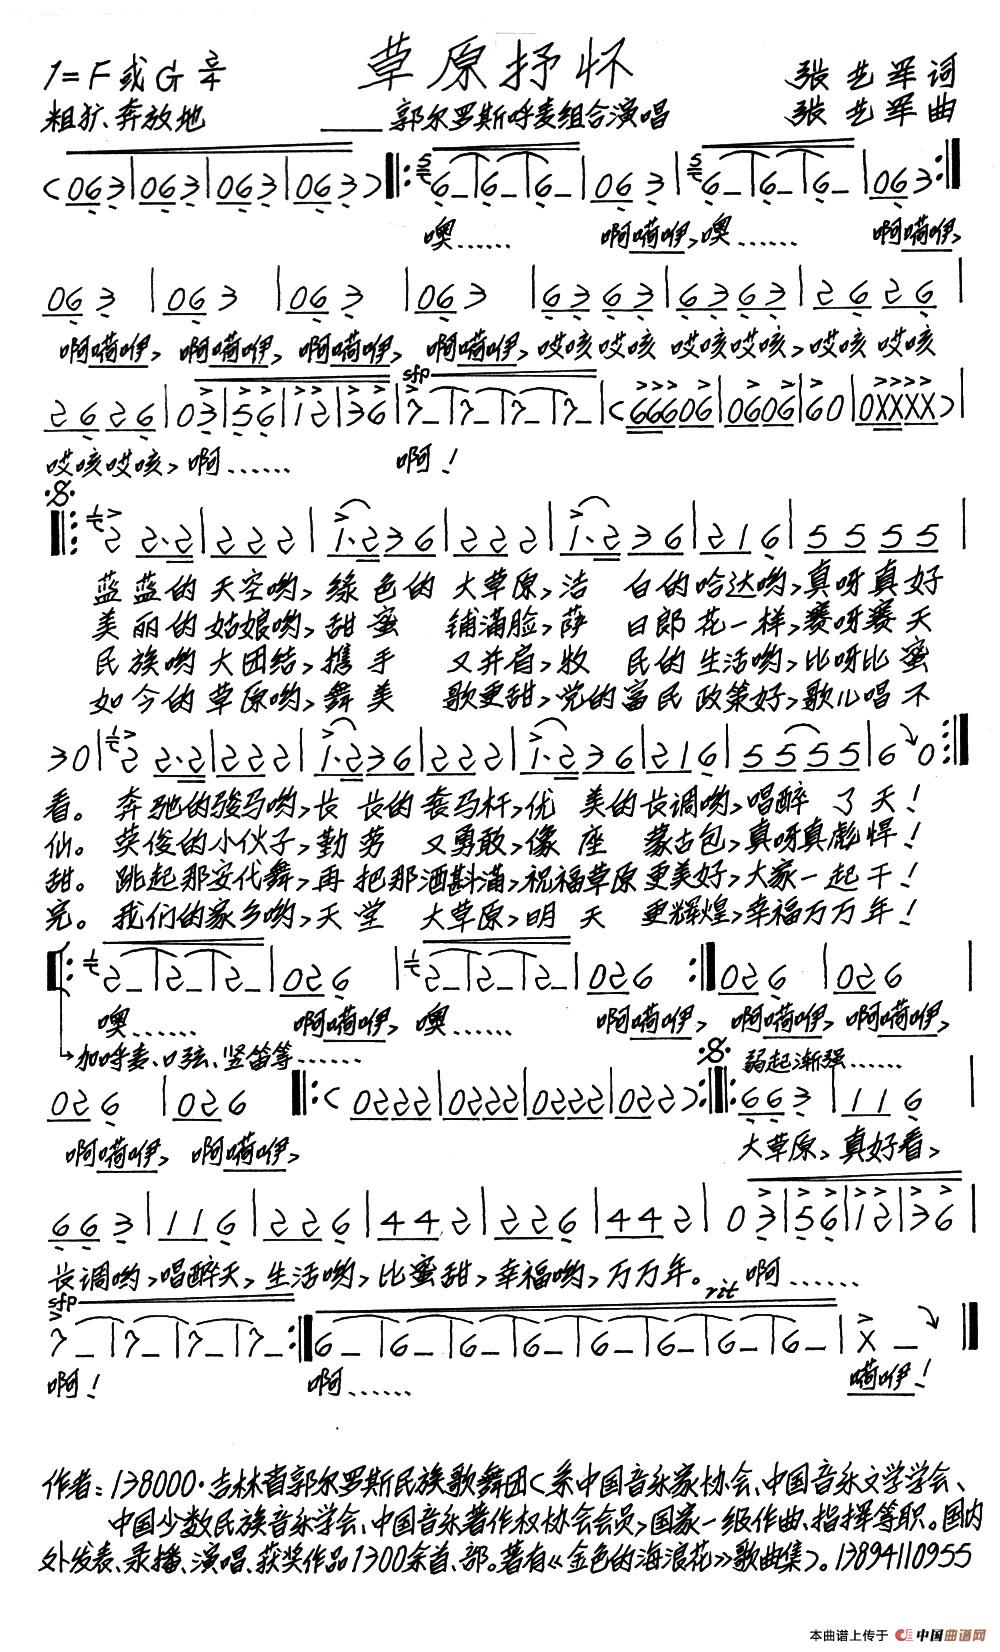 草原抒怀
1=F或G 2/4
张艺军词
粗犷、奔放地
郭尔罗斯呼麦组合演唱
张艺军曲
(063|063|063|063)‖:6_|6_|6_|063|6_|6_|6_|063:‖
噢…… 啊嗬咿,噢…… 啊嗬咿,
063|063|063|063|6363|6363|2626|
啊嗬咿, 啊嗬咿, 啊嗬咿, 啊嗬咿,哎咳哎咳 哎咳哎咳,哎咳哎咳
sfp
2626|03|56|12|36|7_|7_|7_|7_|(66606|0606|60|0XXXX)|
哎咳哎咳,啊…… 啊!
‖:2 2·2|222|1·236|222|1·236|216|5555|
蓝蓝的天空哟,绿色的大草原,洁 白的哈达哟,真呀真好
美丽的姑娘哟,甜蜜 铺满脸,萨 日郎花一样,赛呀赛天
民族哟大团结,携手 又并肩,牧 民的生活哟,比呀比蜜
如今的草原哟,舞美 歌更甜,党的富民政策好,歌儿唱不
30|2 2·2|222|1·236|222|1·236|216|5555|6 0:‖
看。 奔驰的骏马哟,长 长的套马杆,优 美的长调哟,唱醉了天!
仙。 英俊的小伙子,勤劳 又勇敢,像座 蒙古包,真呀真彪悍!
甜。 跳起那安代舞,再把那酒斟满,祝福草原更美好,大家一起干!
完。 我们的家乡哟,天堂 大草原,明天 更辉煌,幸福万万年!
‖:2_|2_|2_|026|2_|2_|2_|026:‖026|026|
噢…… 啊嗬咿,噢…… 啊嗬咿, 啊嗬咿, 啊嗬咿,
加呼麦、口弦、竖笛等……
弱起渐强……
026|026‖:(0222|0222|0222|022):‖:663|116|
啊嗬咿, 啊嗬咿,
大草原、真好看,
663|116|226|442|226|442|03|56|12|36|
长调哟,唱醉天,生活哟,比蜜甜,幸福哟,万万年。 啊……
sfp
rit
7_|7_|7_|7_:‖6_|6_|6_|6_|6_|6_|6_|6_|X_‖
啊! 啊…… 嗬咿!
作者:138000·吉林省郭尔罗斯民族歌舞团(系中国音乐家协会、中国音乐文学学会、
中国少数民族音乐学会、中国音乐著作权协会会员)国家一级作曲、指挥等职。国内
外发表、录播、演唱、获奖作品1300余首、部。著有《金色的海浪花》歌曲集)。13894110955
本曲谱上传于 中国曲谱网